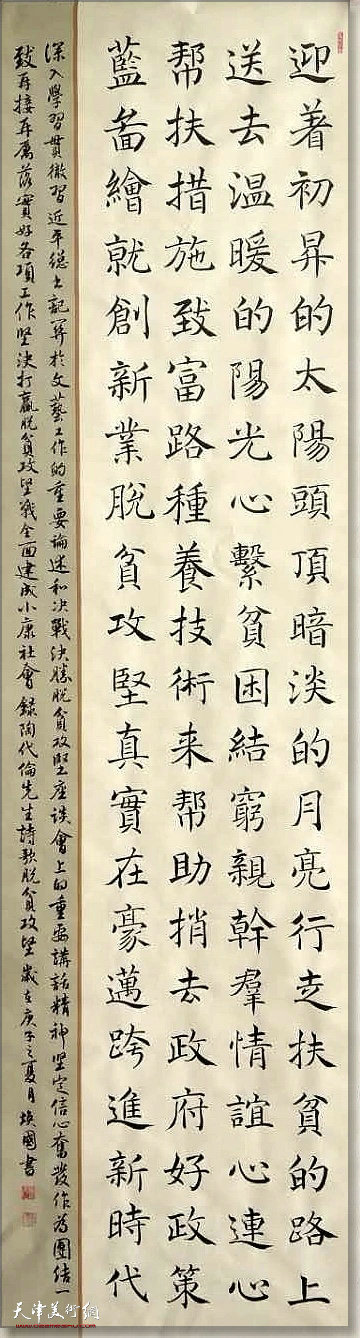 迎着初昇的太陽頭頂暗淡的月亮行走扶貧的路上
送去温暖的陽光心繫貧困結窮親幹羣情誼心連心
帮扶措施致富路種養技術来帮助捎去政府好政策
藍畵繪就創新業脫貧攻堅真實在豪邁跨進新時代
深入學習貫徹習近平總書記関於文藝工作的重要論述和决戰决勝脫貧攻堅座谈會上的重要講話精神坚定信心奮發作為團结一
致再接再厲落實好各項工作坚决打贏脫貧攻坚戰全面建成小康社會錄陶代倫先生詩歌脫貧攻坚歲在庚子之夏月焕國書
天津美术網